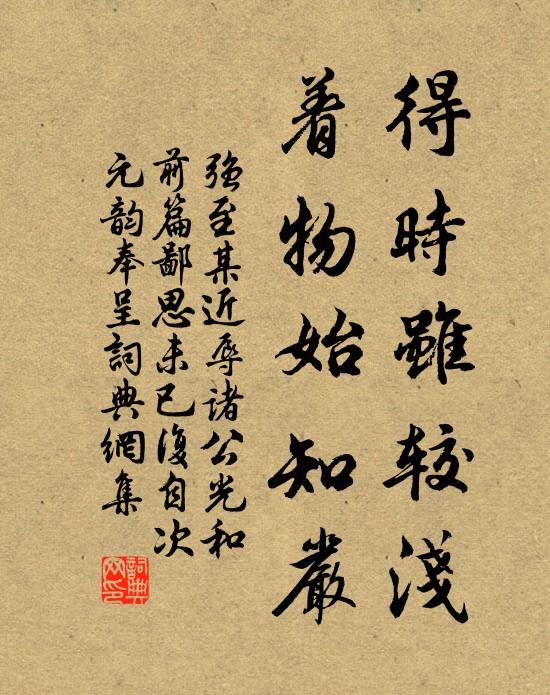 得時雖较淺
着物始知嚴
强至某近辱諸公光和
前篇鄙思未已復自次
元韵奉呈詞典網集
詞典
网印